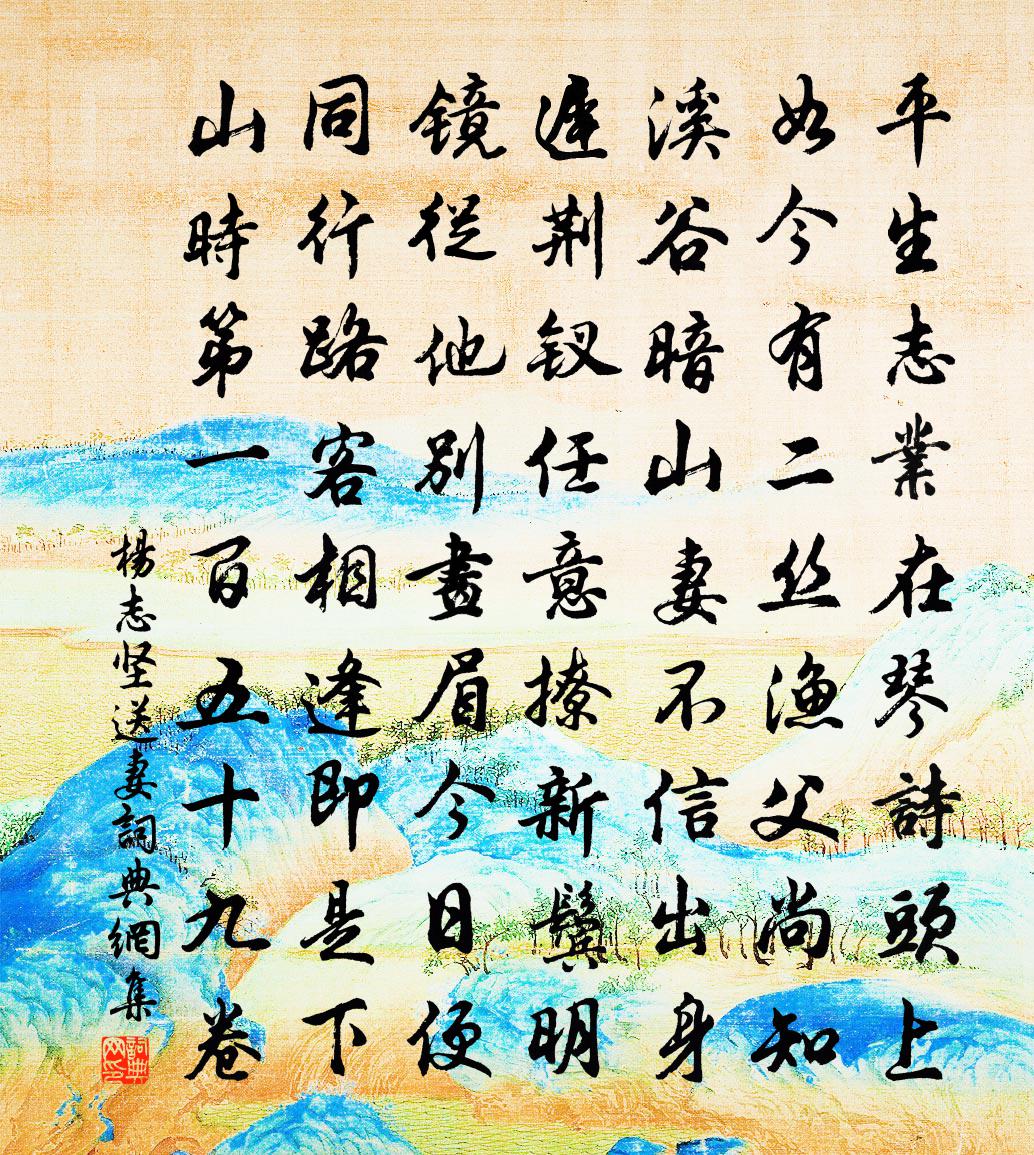 平生志業在琴詩頭上
如今有二丝漁父尚知
溪谷暗山妻不信出身
遲荆钗任意撩新鬢明
镜從他別畫眉今日便
同行路客相逢即是下
山時第一百五十九卷
楊志坚送妻詞典網集
詞典网印